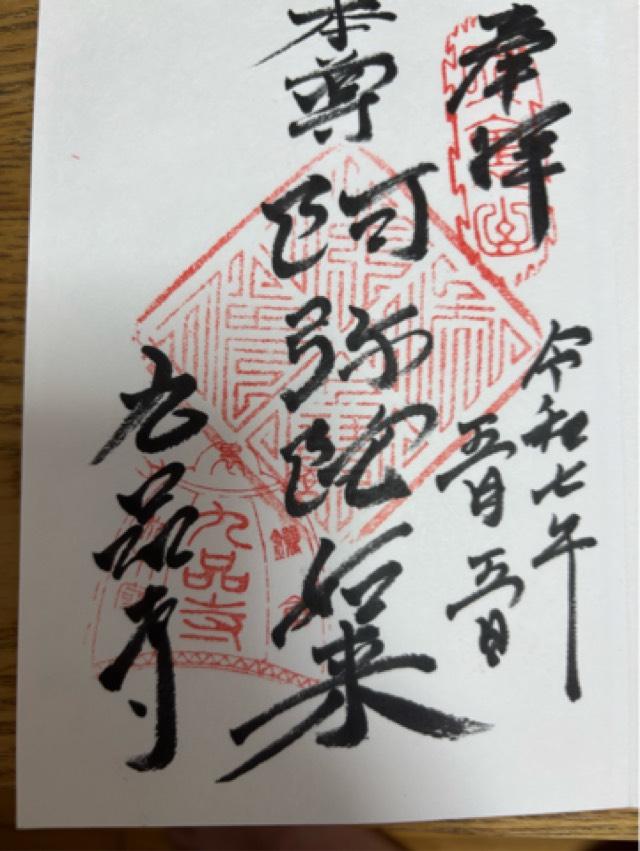 奉拝
令和七年
五月五日
本尊
阿弥陀如来
九品寺
九品寺